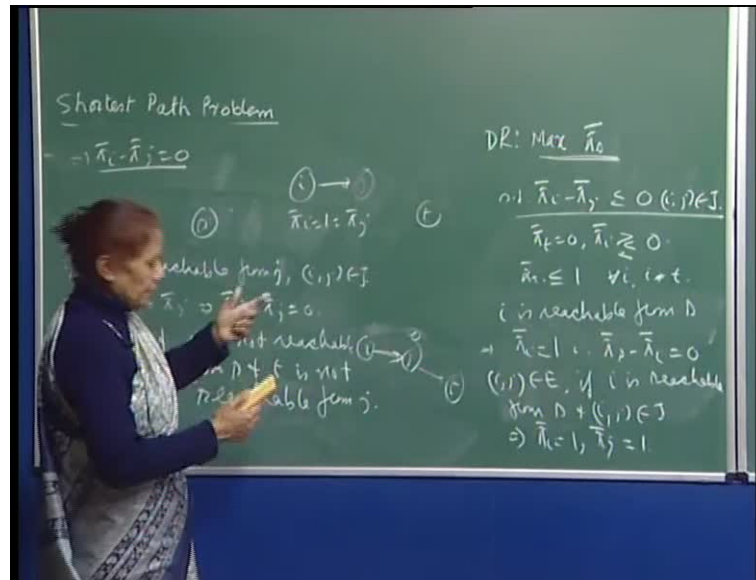 Shortest Path Problem
⇒ π̄i - π̄j = 0
i → j
s
π̄i = 1 = π̄j
t
reachable from j, (i,j) ∈ J
π̄j ⇒ π̄j = 0.
not reachable
s & t is not
reachable from j.
i → j
t
DR: Max π̄s
s.t π̄i - π̄j ≤ 0 (i,j) ∈ J.
π̄t = 0, π̄i ≷ 0.
π̄i ≤ 1 ∀i, i ≠ t.
i is reachable from s
⇒ π̄i = 1 ∵ π̄s - π̄i = 0
(i,j) ∈ E, if i is reachable
from s & (i,j) ∈ J
⇒ π̄i = 1, π̄j = 1